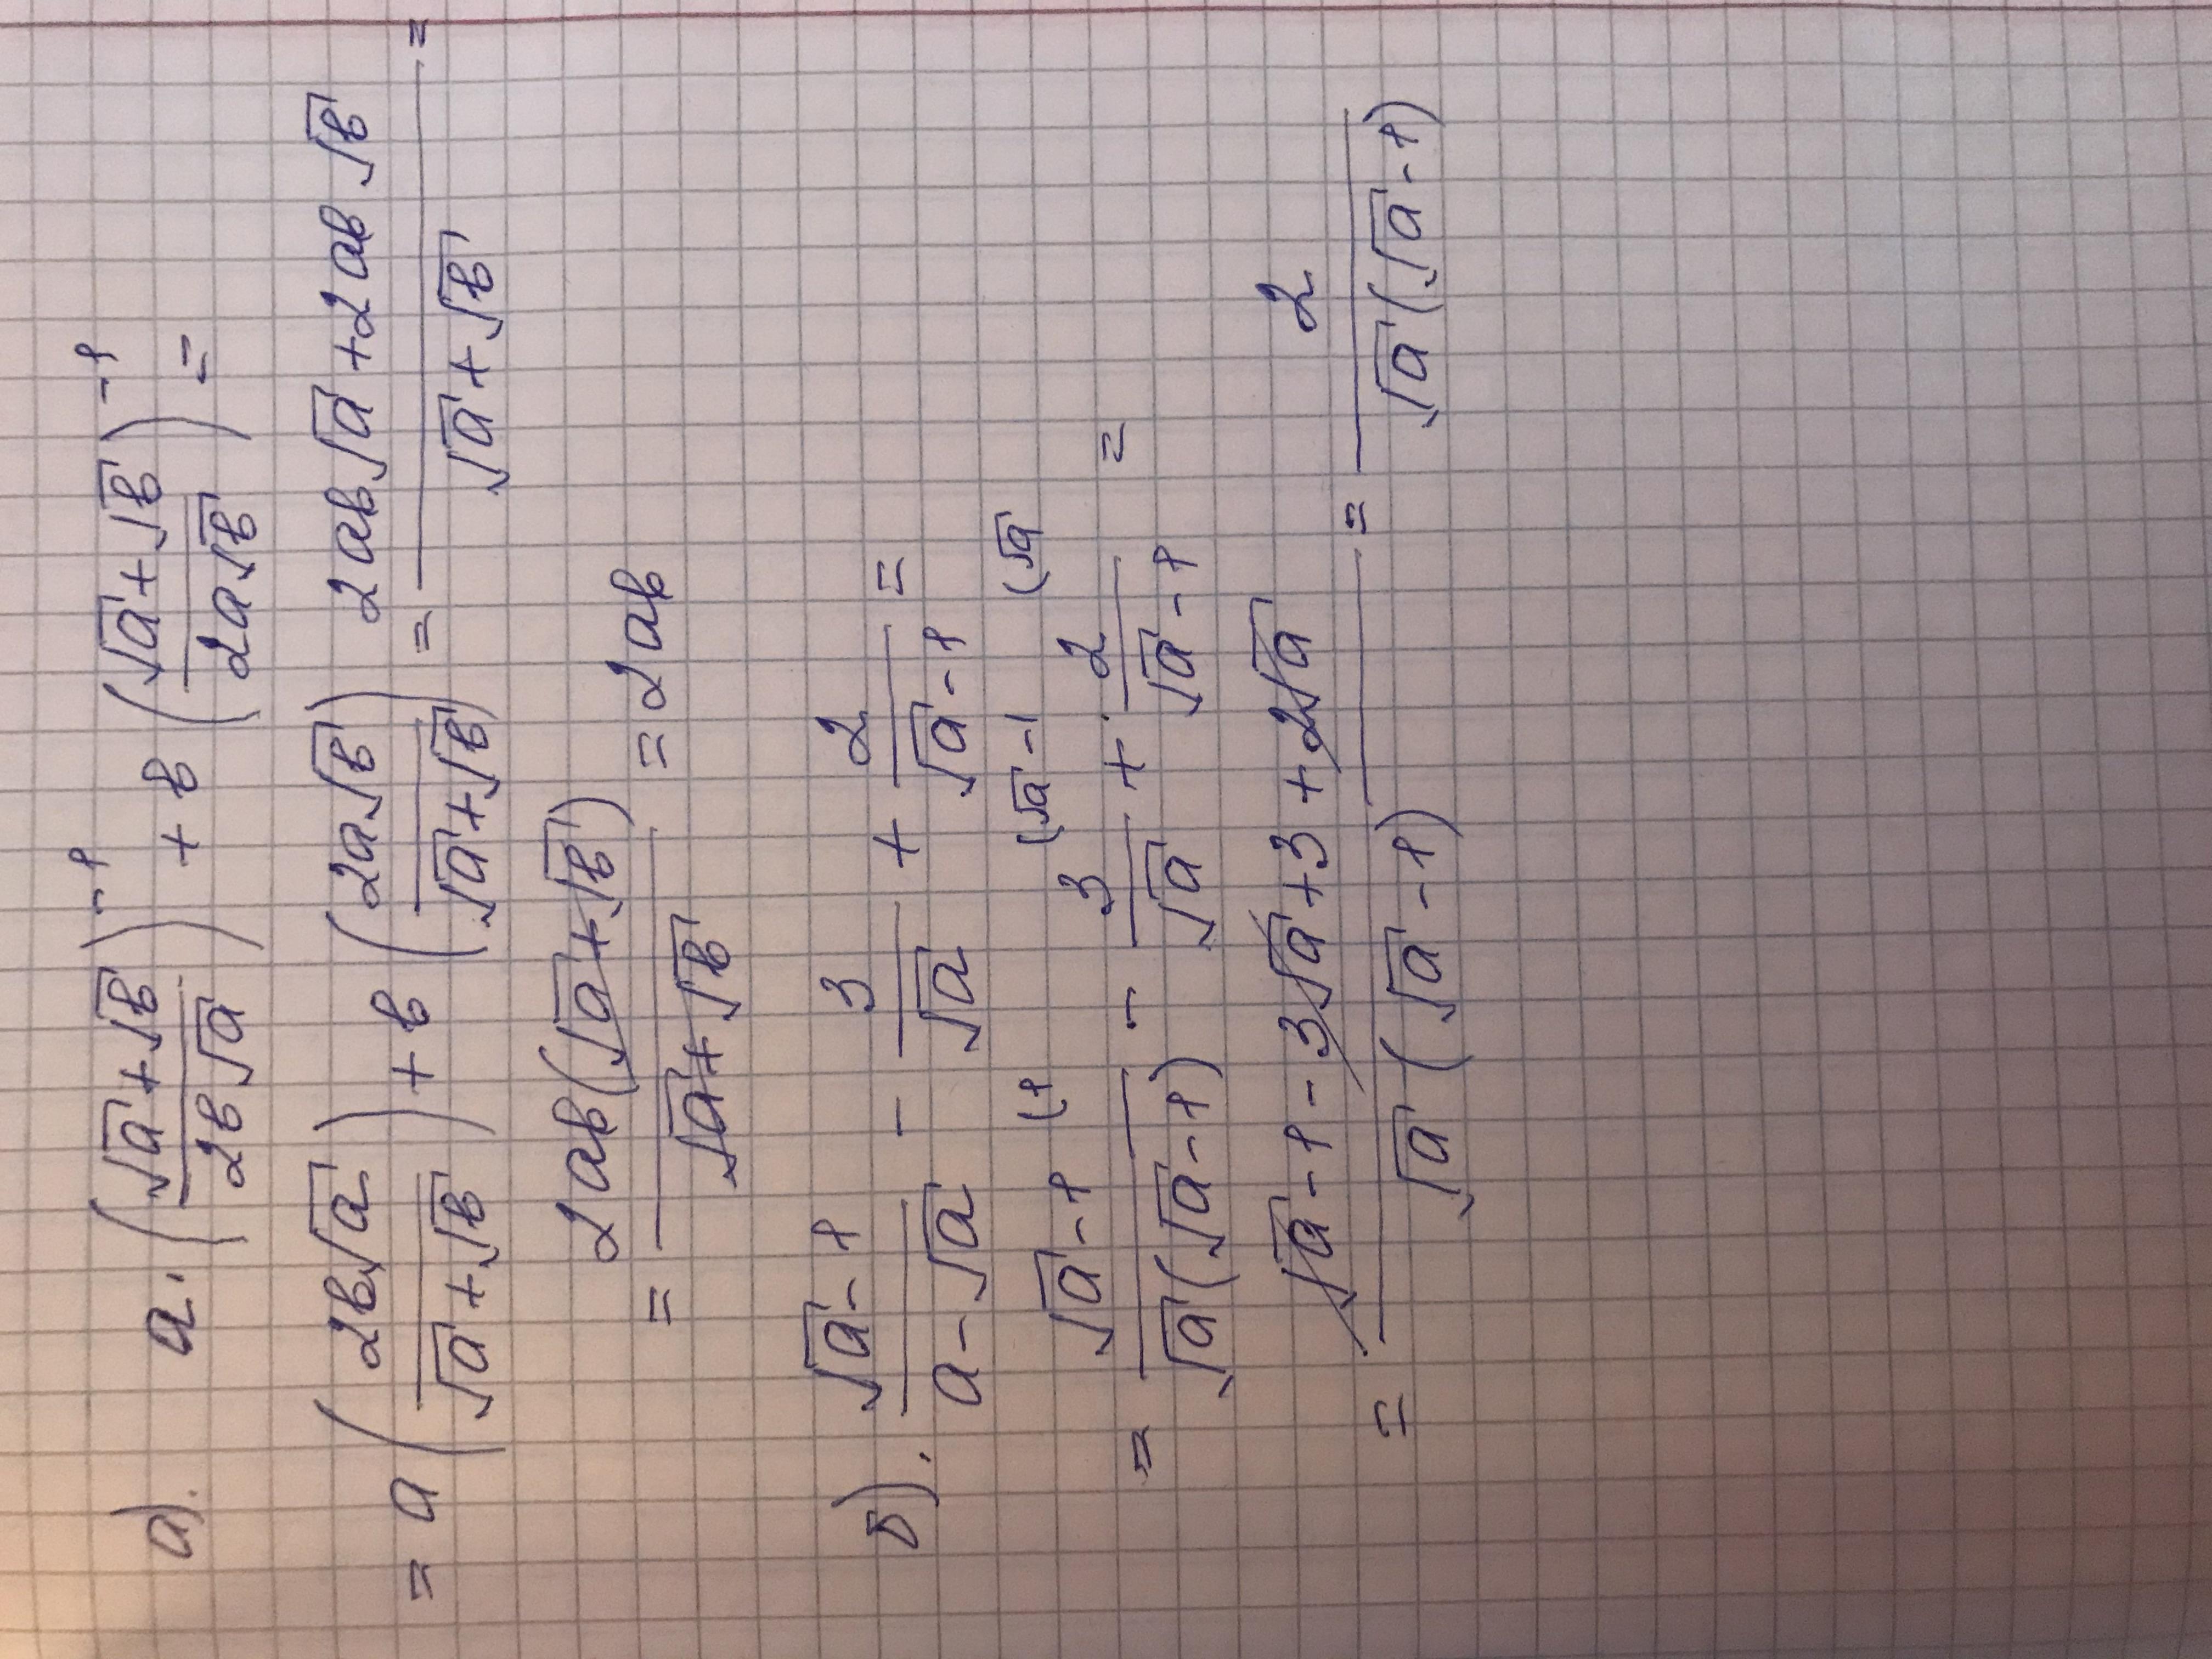 а). a · ((√a + √b)/(2b√a))⁻¹ + b((√a + √b)/(2a√b))⁻¹ =
= a((2b√a)/(√a + √b)) + b((2a√b)/(√a + √b)) = (2ab√a + 2ab√b)/(√a + √b) =
= (2ab(√a + √b))/(√a + √b) = 2ab
б). (√a - 1)/(a - √a) - 3/√a + 2/(√a - 1) =
(1 (√a - 1 (√a
= (√a - 1)/(√a(√a - 1)) - 3/√a + 2/(√a - 1) =
= (√a - 1 - 3√a + 3 + 2√a)/(√a(√a - 1)) = 2/(√a(√a - 1))